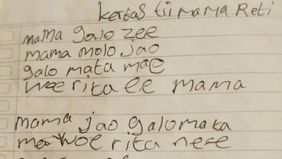 kertas tii mama Reti
mama galo zee
mama molo Jao
galo mata mae
woe rita ee mama
mama jao galo mata
mae woe rita nese